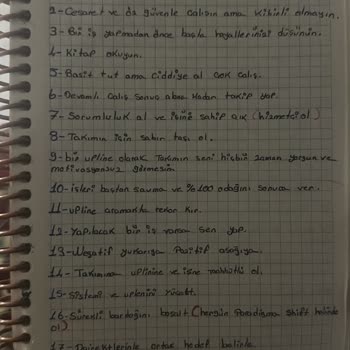 2- Cesaret ve da güvenle çalışın ama kibirli olmayın.
3- Bir iş yapmadan önce başla hayallerinizi düşünün.
4- Kitap okuyun.
5- Basit tut ama ciddiye al çok çalış.
6- Devamlı çalış sonuç alana kadar takip yap.
7- Sorumluluk al ve işine sahip çık (hizmetci ol)
8- Takımın için sabır taşı ol.
9- bir upline olarak Takımın seni hiçbir zaman yorgun ve
motivasyonsuz görmesin
10- işleri baştan savma ve %100 odağını sonuca ver.
11- upline aramakta rekor kır.
12- Yapılacak bir iş varsa sen yap.
13- Negatif yukarıya Pozitif aşağıya.
14- Takımına uplinine ve işine ol.
15- Sistemi ve uplenini yücelt.
16- bardağını boşalt (hergün Paradigma shift halinde
ol)
17- ortak hedef belirle